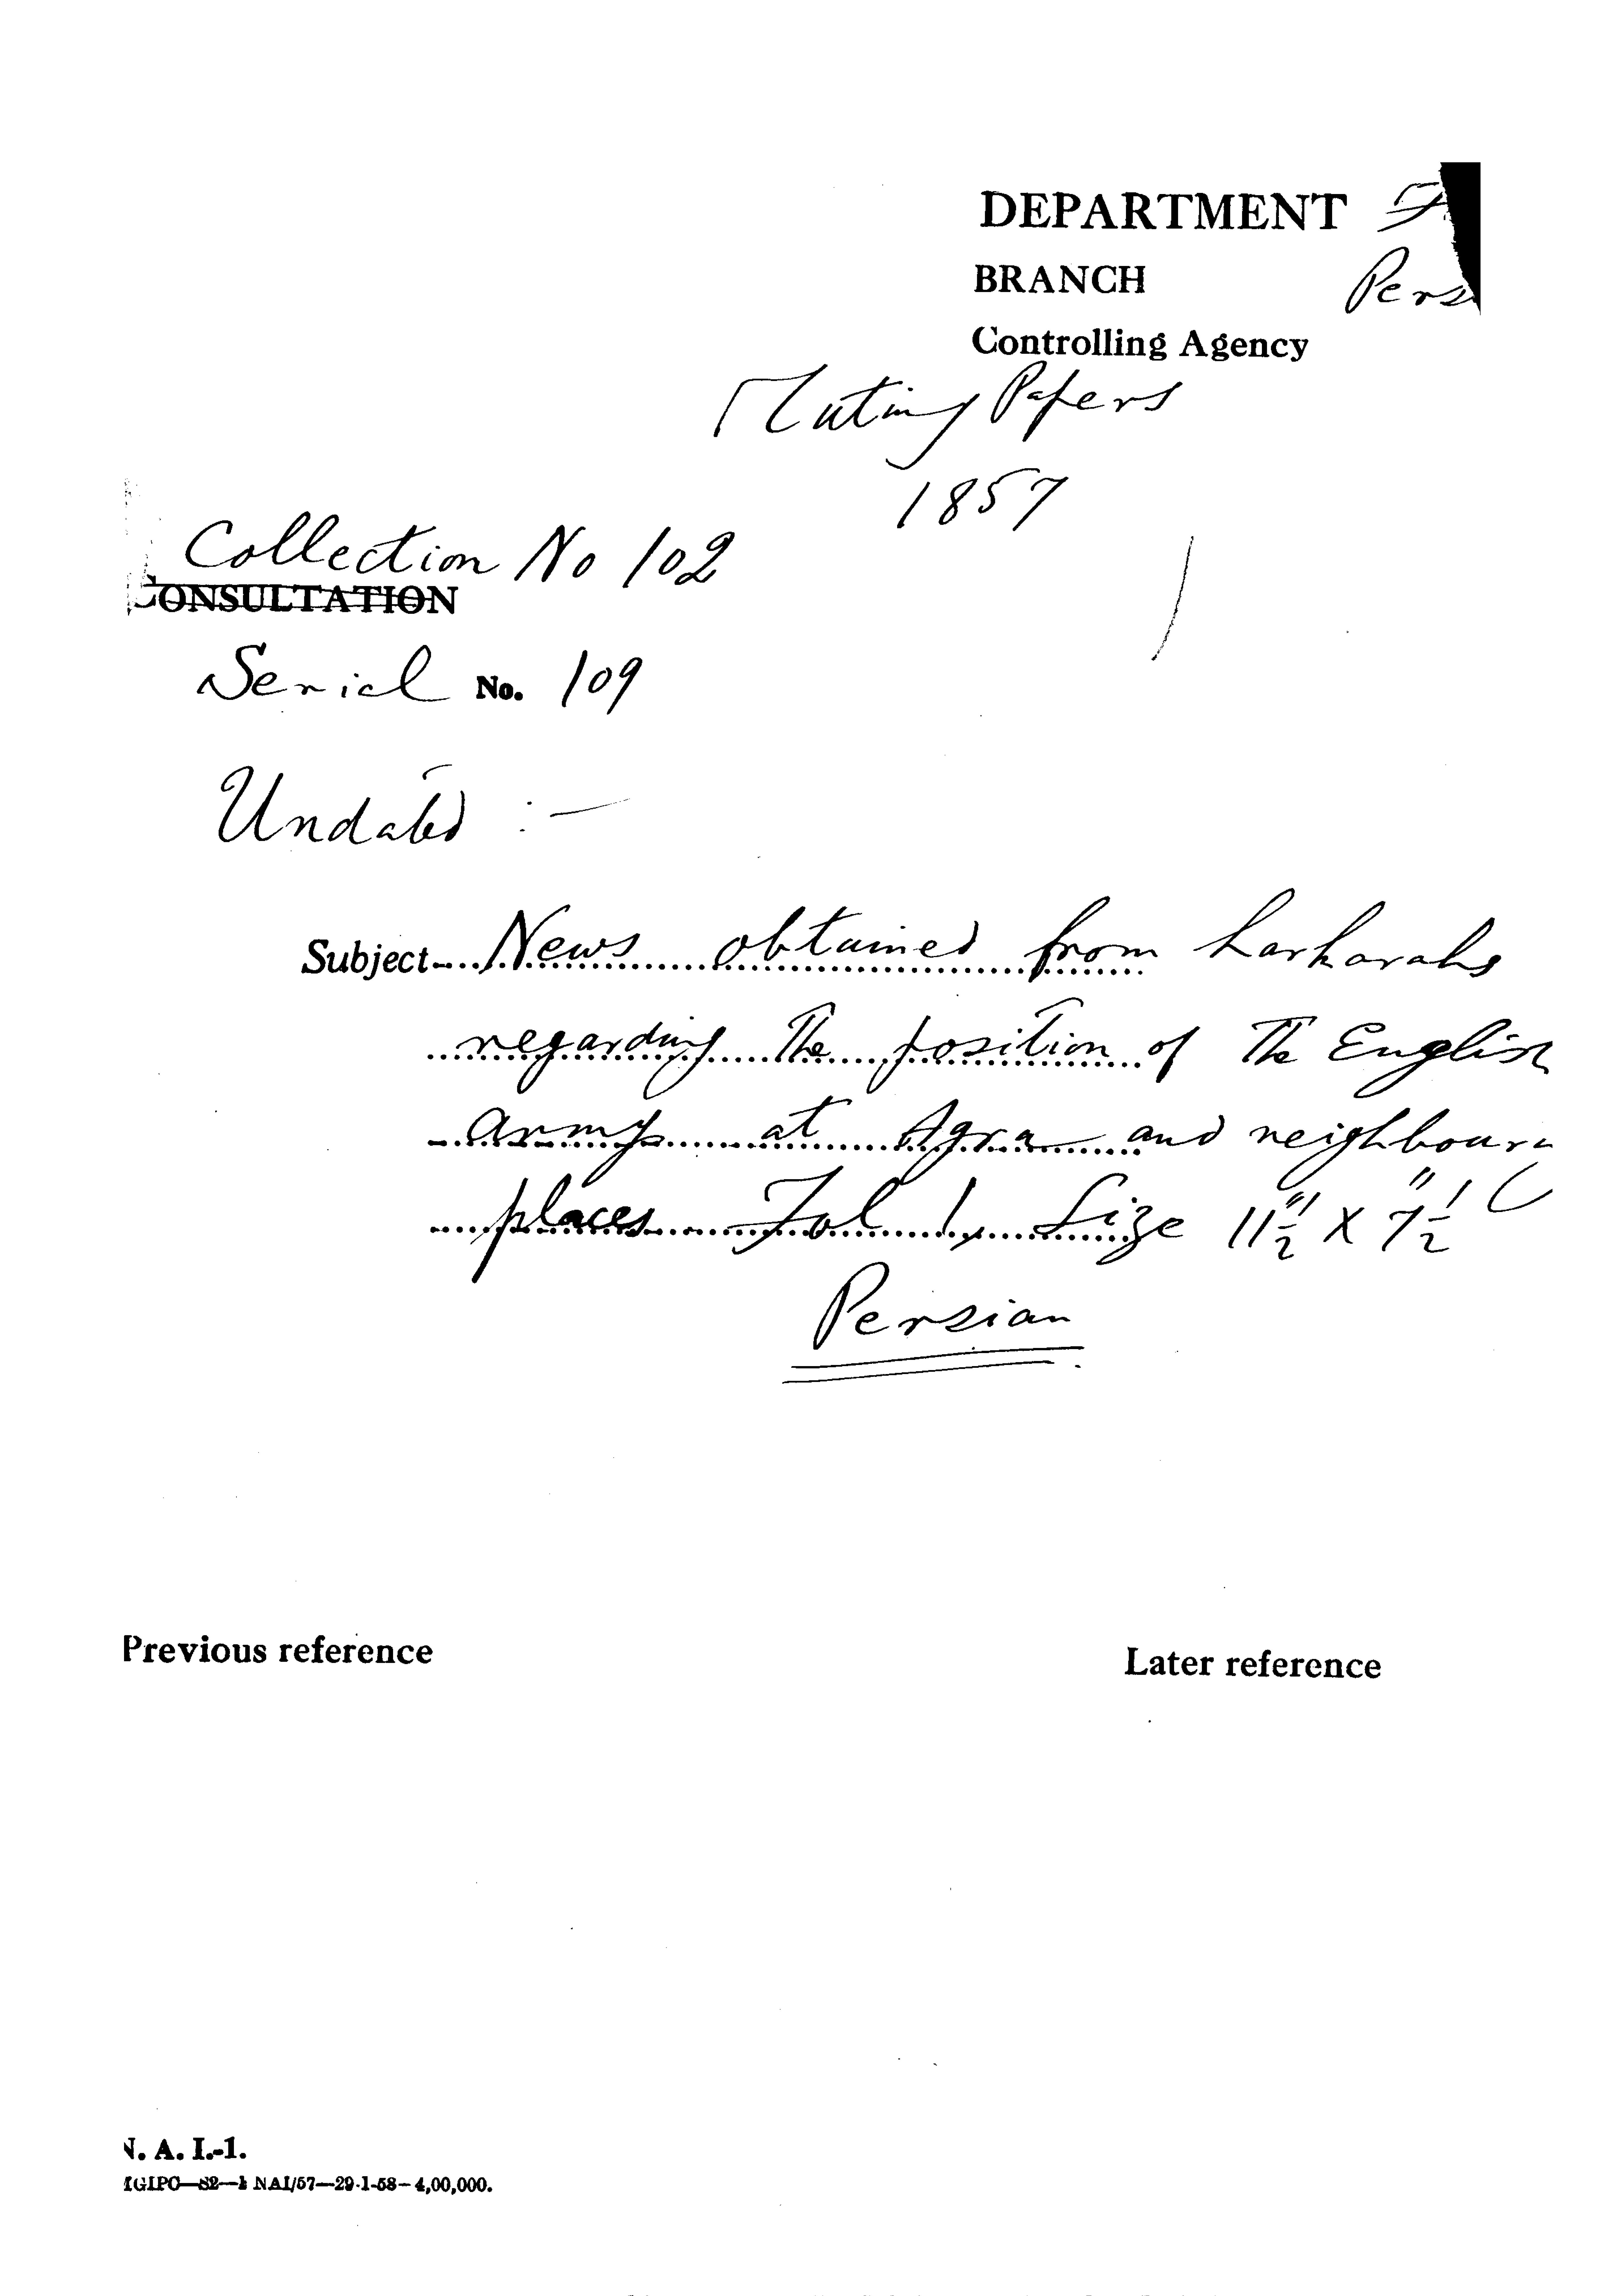 DEPARTMENT
BRANCH Pers
Controlling Agency
Mutiny Papers
1857
Collection No 102
CONSULTATION
Serial No. 109
Undated :—
Subject— News obtained from harkarahs
regarding the position of the English
army at Agra and neighbour
places Fol 1, Size 11½" x 7½"
Persian
Previous reference
Later reference
N. A. I.-1.
NAI/57—29-1-58—4,00,000.